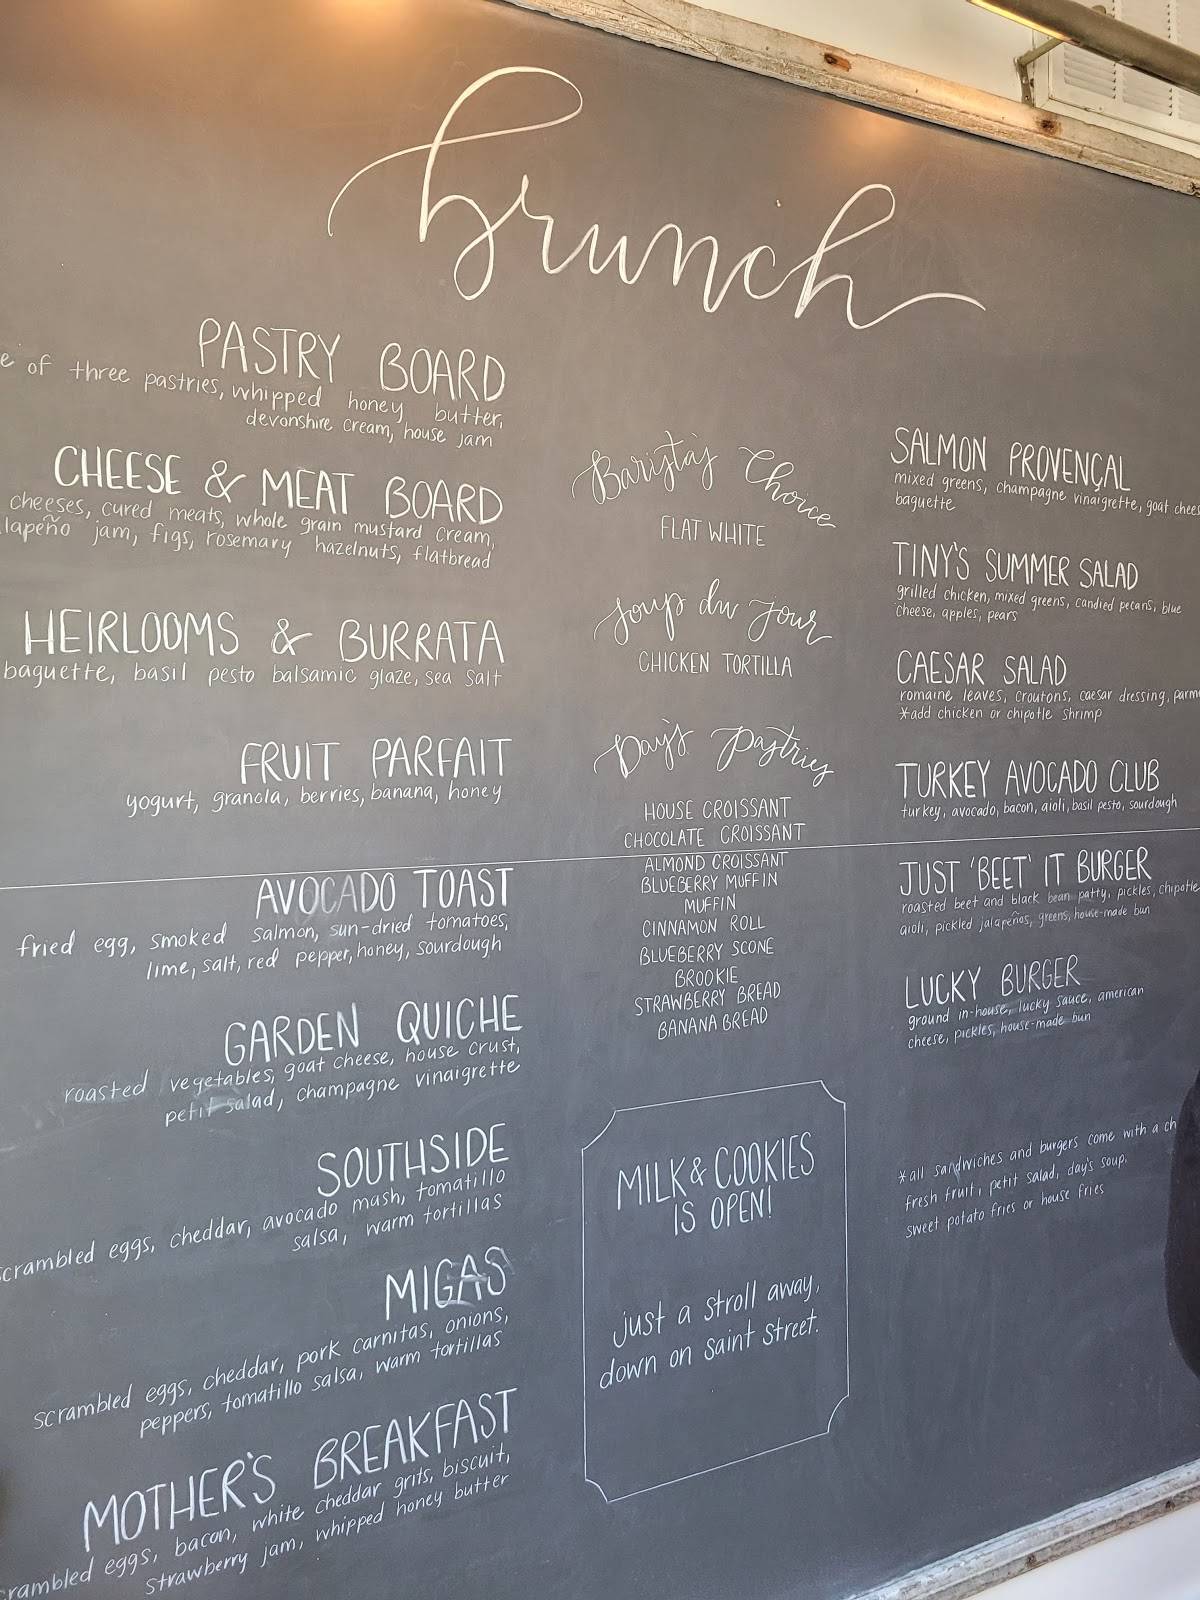 brunch
PASTRY BOARD
of three pastries, whipped honey butter,
devonshire cream, house jam
CHEESE & MEAT BOARD
cheeses, cured meats, whole grain mustard cream,
jam, figs, rosemary hazelnuts, flatbread
HEIRLOOMS & BURRATA
baguette, basil pesto balsamic glaze, sea salt
FRUIT PARFAIT
yogurt, granola, berries, banana, honey
AVOCADO TOAST
fried egg, smoked salmon, sun-dried tomatoes,
lime, salt, red pepper, honey, sourdough
GARDEN QUICHE
roasted vegetables, goat cheese, house crust,
petit salad, champagne vinaigrette
SOUTHSIDE
scrambled eggs, cheddar, avocado mash, tomatillo
salsa, warm tortillas
MIGAS
scrambled eggs, cheddar, pork carnitas, onions,
peppers, tomatillo salsa, warm tortillas
MOTHER'S BREAKFAST
scrambled eggs, bacon, white cheddar grits, biscuit,
strawberry jam, whipped honey butter
Barista's Choice
FLAT WHITE
Soup du Jour
CHICKEN TORTILLA
Day's Pastries
HOUSE CROISSANT
CHOCOLATE CROISSANT
ALMOND CROISSANT
BLUEBERRY MUFFIN
MUFFIN
CINNAMON ROLL
BLUEBERRY SCONE
BROOKIE
STRAWBERRY BREAD
BANANA BREAD
MILK & COOKIES
IS OPEN!
just a stroll away,
down on saint street.
SALMON PROVENÇAL
mixed greens, champagne vinaigrette, goat chees
baguette
TINY'S SUMMER SALAD
grilled chicken, mixed greens, candied pecans, blue
cheese, apples, pears
CAESAR SALAD
romaine leaves, croutons, caesar dressing, parm
*add chicken or chipotle shrimp
TURKEY AVOCADO CLUB
turkey, avocado, bacon, aioli, basil pesto, sourdough
JUST 'BEET' IT BURGER
roasted beet and black bean patty, pickles, chipotle
aioli, pickled jalapeños, greens, house-made bun
LUCKY BURGER
ground in-house, lucky sauce, american
cheese, pickles, house-made bun
*all sandwiches and burgers come with a ch
fresh fruit, petit salad, day's soup,
sweet potato fries or house fries